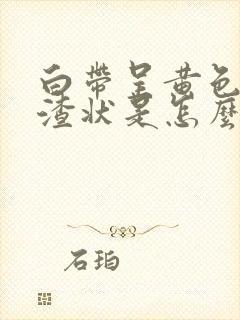 白帶呈黄色
渣状是怎麽
石珀